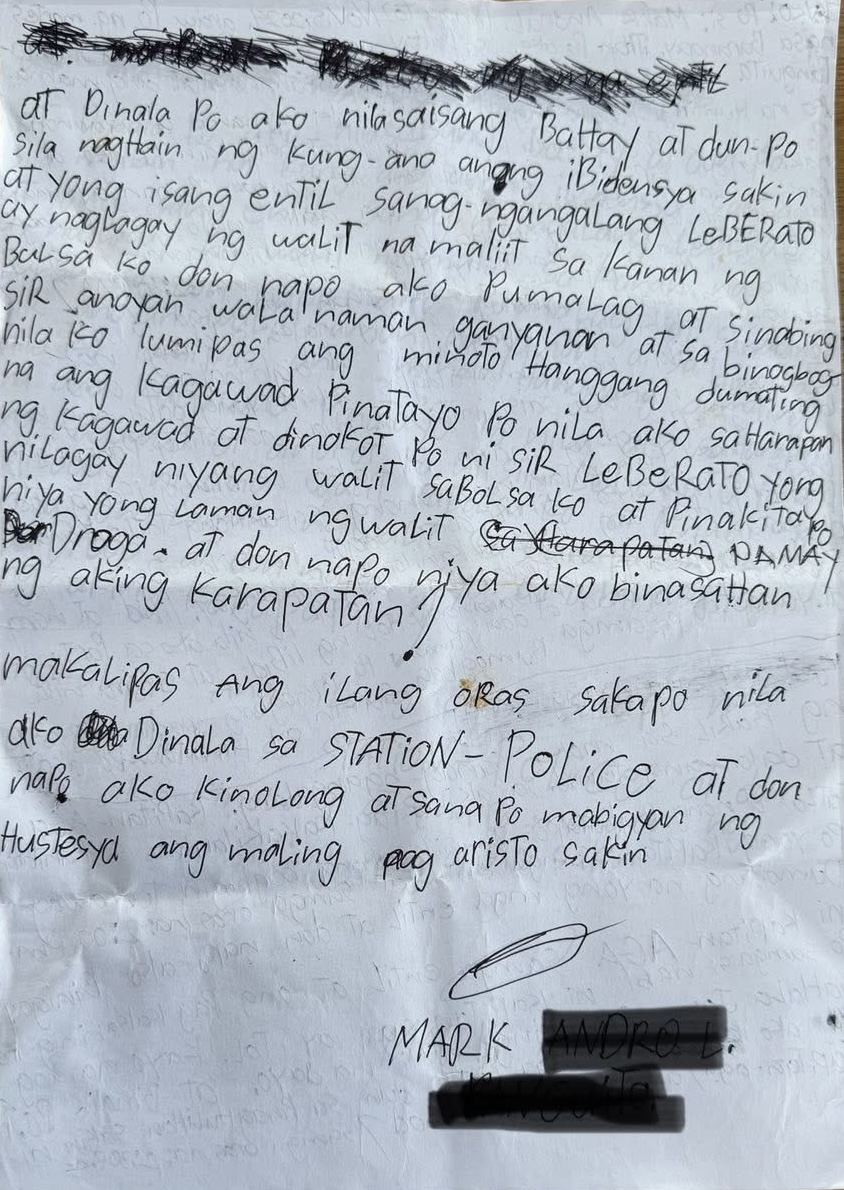 at Dinala Po ako nila saisang Bahay at dun-po
sila nagHain ng kung-ano anong iBidensya sakin
at yong isang entil sanog-ngangalang LeBERatO
ay naglagay ng walit na maliit sa kanan ng
BuLsa ko don napo ako Pumalag at Sinabing
SiR anoyan wala naman ganyanan at sa binogbog
nila ko lumipas ang minoto Hanggang dumating
na ang Kagawad Pinatayo Po nila ako saHarapan
ng kagawad at dinokot Po ni SiR LeBeRaTO yong
nilagay niyang walit saBoLsa ko at Pinakita po
niya yong Laman ng walit PAMAY
Droga. at don napo niya ako binasaHan
ng aking karapatan
makaLipas Ang iLang oRas sakapo nila
ako Dinala sa STATiON-POLiCe at don
napo ako kinolong at sana Po mabigyan ng
Hustesya ang maling pag aristo sakin
MARK